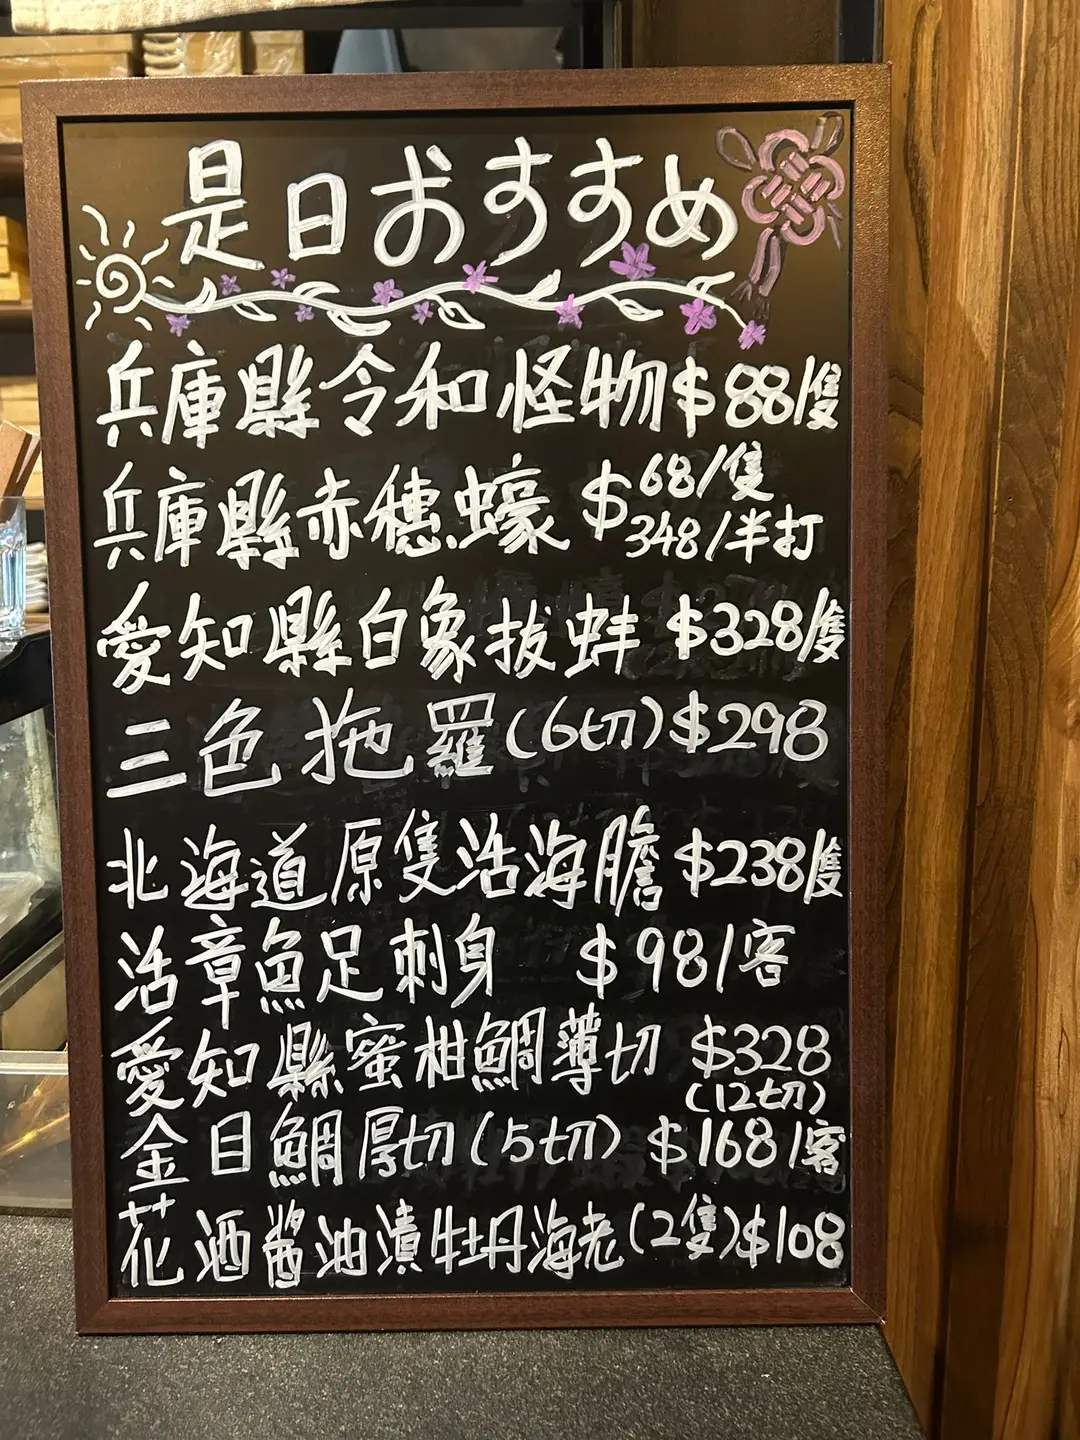 是日おすすめ
兵庫縣令和怪物$88/隻
兵庫縣赤穗蠔 $68/隻
348/半打
愛知縣白象拔蚌 $328/隻
三色拖羅(6切)$298
北海道原隻活海膽 $238/隻
活章魚足刺身 $98/客
愛知縣蜜柑鯛薄切 $328
(12切)
金目鯛厚切(5切) $168/客
花酒醬油漬牡丹海老(2隻)$108